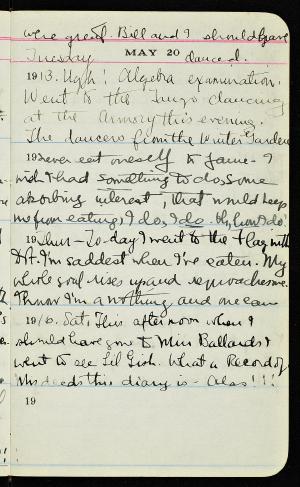 were great. Bill and I should have
Tuesday MAY 20 danced.
1913. Ugh! Algebra examination.
Went to the Tango dancing
at the Armory this evening.
The dancers from the Winter Garden
19 never eat oneself to fame - I
wish I had something to do, some
absorbing interest, that would keep
me from eating, I do, I do. Oh, how I do!
19 Sun - To-day I went to the Play with
I'm saddest when I've eaten. My
whole soul rises up and reproaches me.
I know I'm a nothing and one can
1916. Sat. This afternoon when I
should have gone to Miss Ballards I
went to see Lil Gish. What a Record of
Misdeeds this diary is - Alas!!!
19